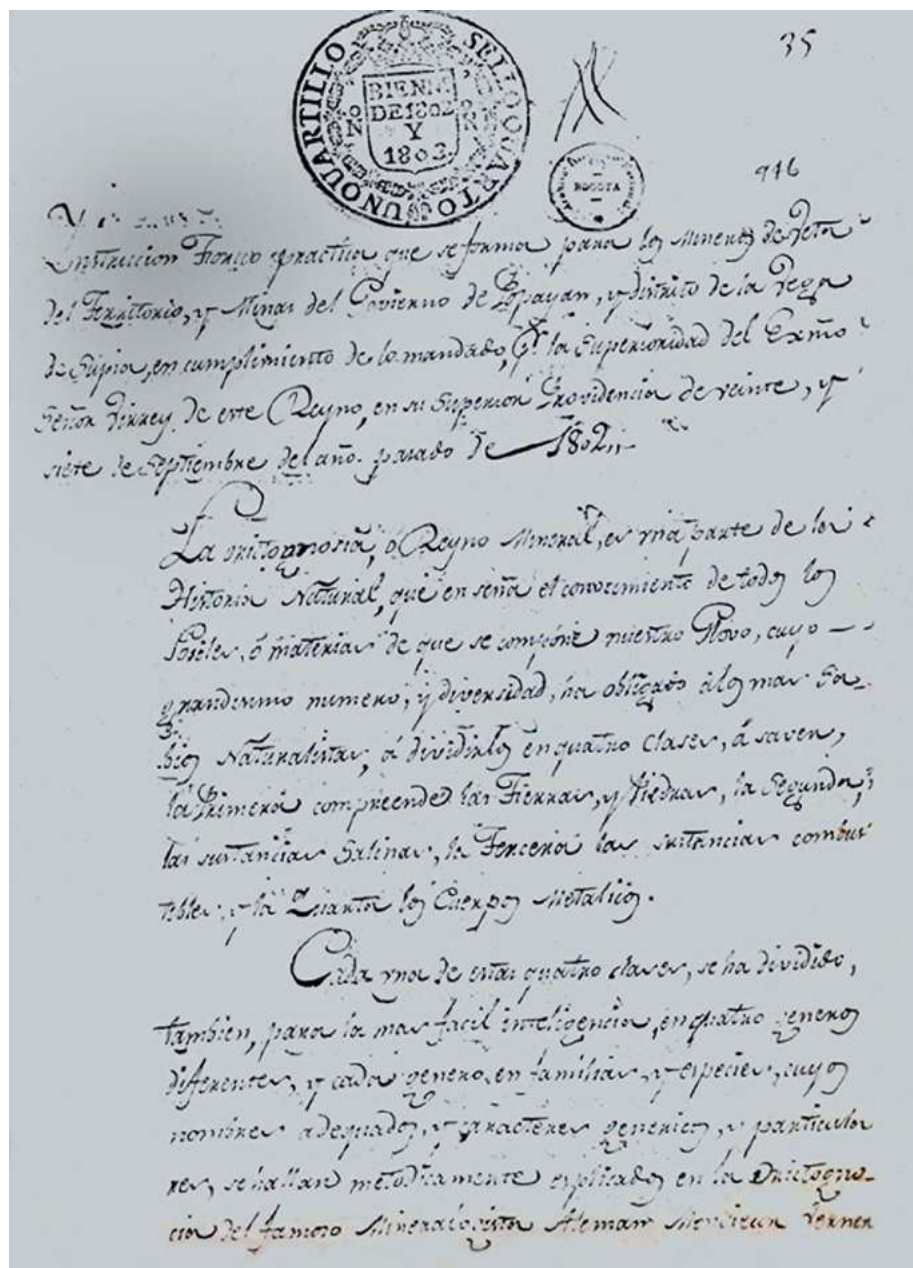 35
SELLO QUARTO UN QUARTILLO
BIENIO
DE 1802
Y
1803.
BOGOTA
946
Instruccion Tiorico practica que se forma para los Mineros de Veta
del Territorio, y Minas del Govierno de Popayan, y distrito de la Vega
de Supia, en cumplimiento de lo mandado, Pr. la Superioridad del Exmo
Señor Virrey de este Reyno, en su Superior Providencia de veinte, y
siete de Septiembre del año pasado de 1802,,
La orictognosia, ó Reyno Mineral, es una parte de la
Historia Natural, que enseña el conocimiento de todos los
Fosiles, ó materias de que se compone nuestro Glovo, cuyo
grandisimo numero, y diversidad, ha obligado álos mas Sa-
bios Naturalistas, á dividirlos en quatro clases, á saver,
la Primera compreende las Tierras, y Piedras, la Segunda,
las sustancias Salinas, la Tercera las sustancias combus
tibles, y la Quarta los Cuerpos Metalicos.
Cada una de estas quatro clases, se ha dividido,
tambien, para la mas facil inteligencia, en quatro generos
diferentes, y cada genero, en familias, y especies, cuyos
nombres adequados, y caracteres genericos, y particula
res, se hallan metodicamente explicados en la Orictogno-
cia del famoso Mineralogista Aleman Monsieur Verner